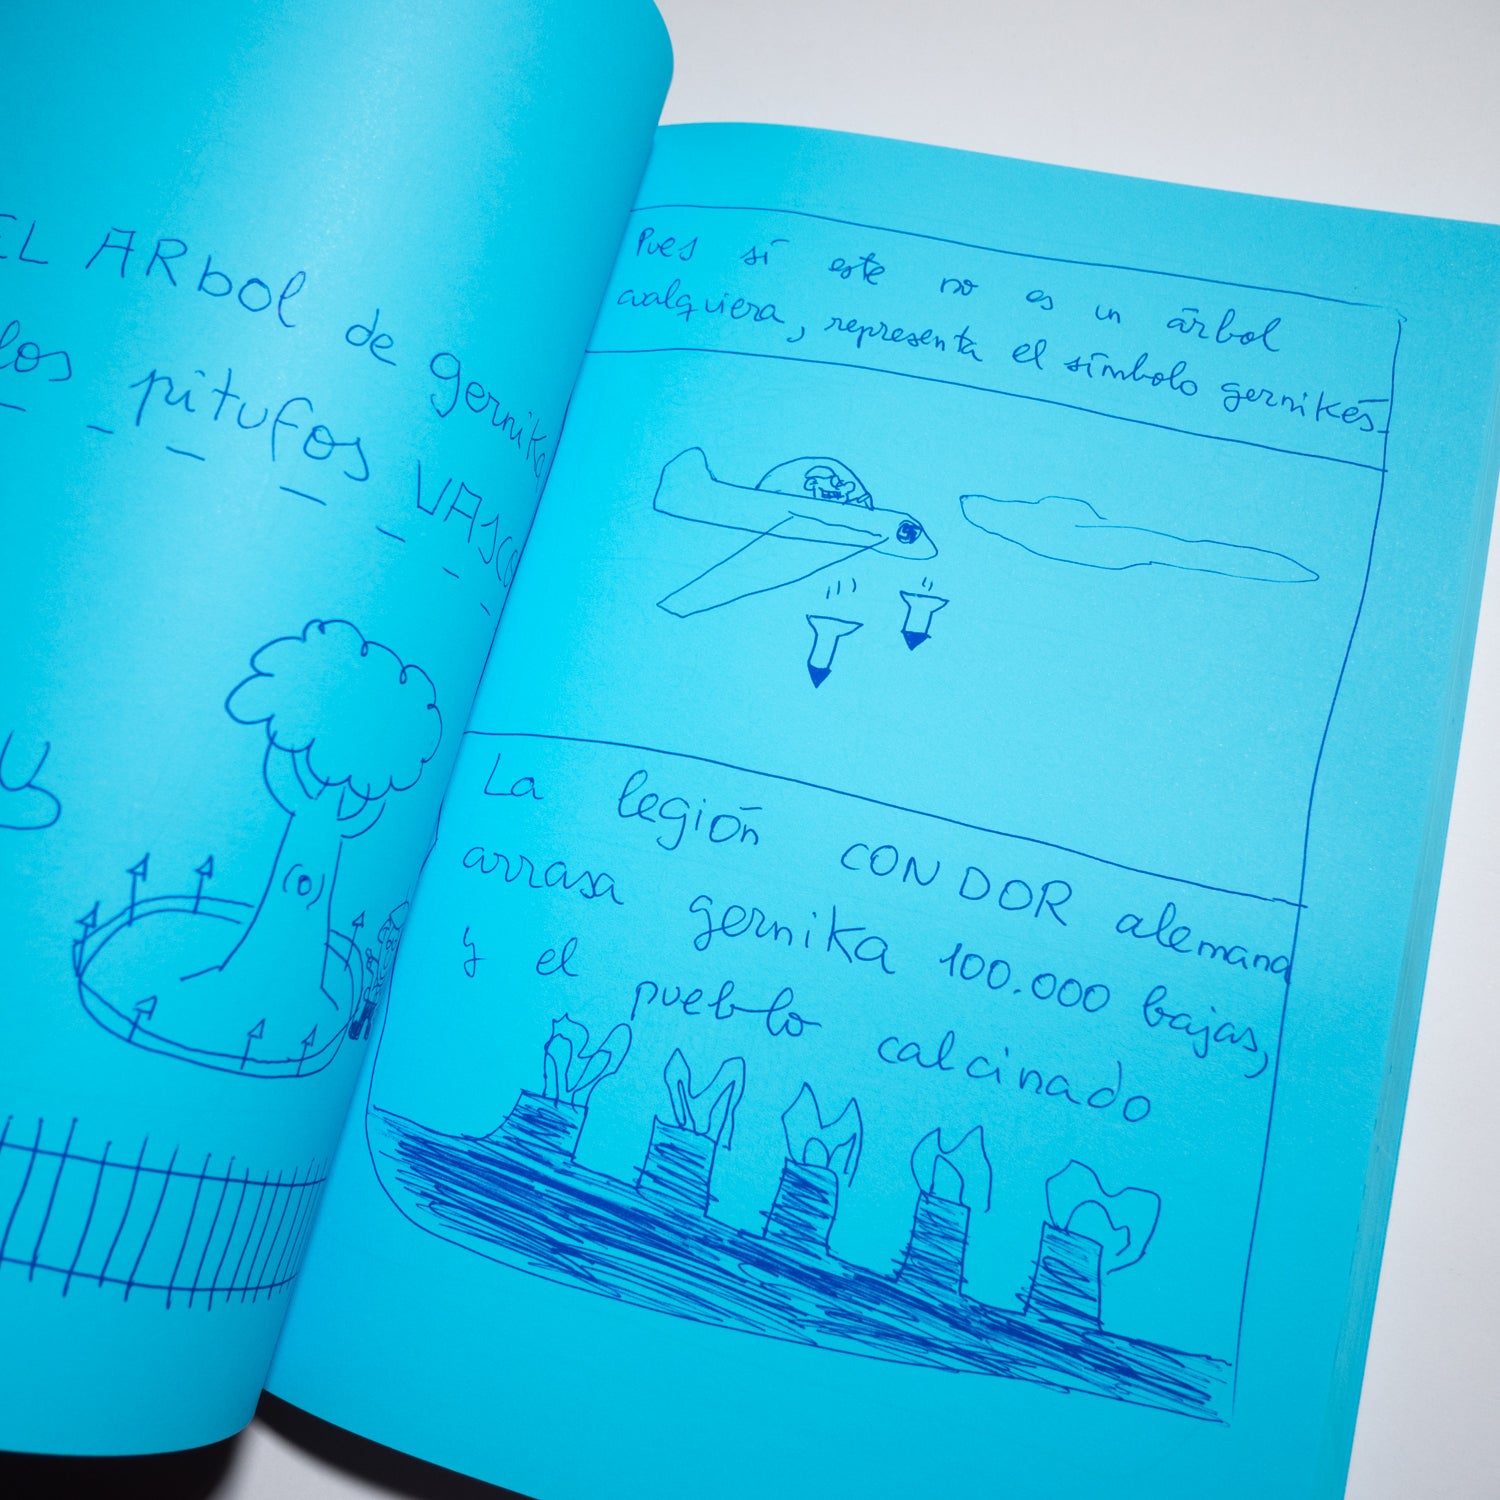 EL ARbol de gernika
los pitufos VASCO
y
Pues sí este no es un árbol
cualquiera, representa el símbolo gernikés.
La legión CONDOR alemana
arrasa gernika 100.000 bajas,
y el pueblo calcinado